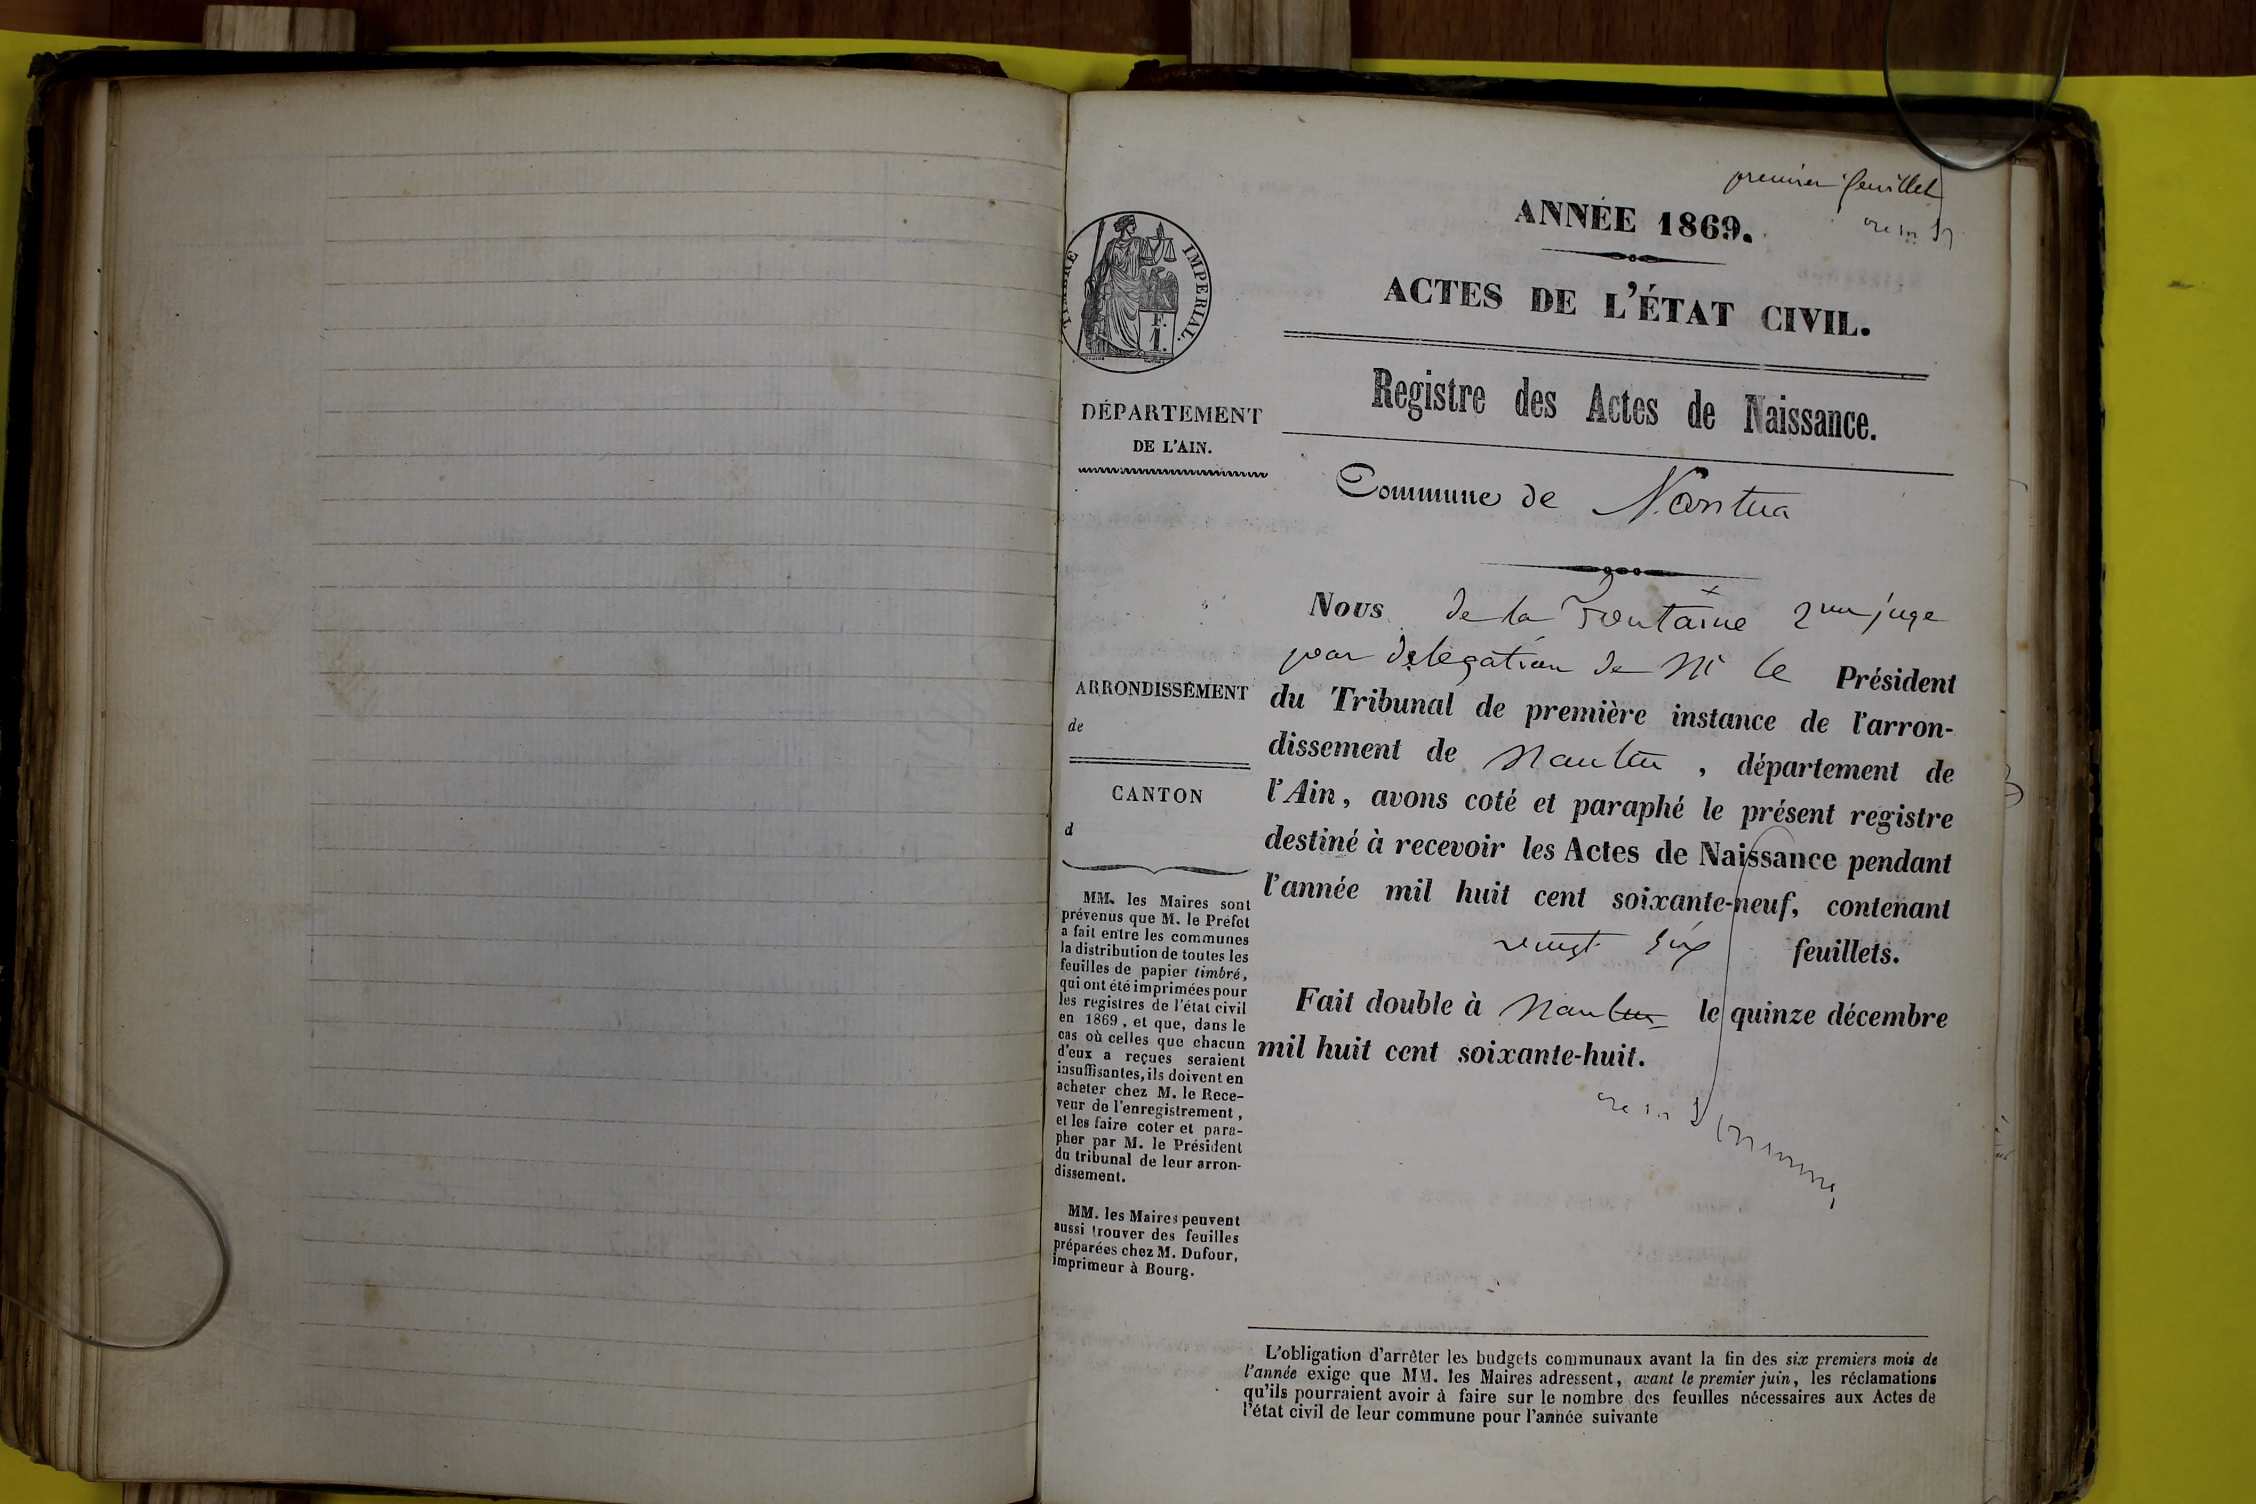 premier feuillet
ANNÉE 1869.
ACTES DE L'ÉTAT CIVIL.
Registre des Actes de Naissance.
Commune de Nantua
TIMBRE IMPERIAL.
F.
1.
DÉPARTEMENT
DE L'AIN.
ARRONDISSEMENT
de
CANTON
d
MM. les Maires sont
prévenus que M. le Préfet
a fait entre les communes
la distribution de toutes les
feuilles de papier timbré,
qui ont été imprimées pour
les registres de l'état civil
en 1869, et que, dans le
cas où celles que chacun
d'eux a reçues seraient
insuffisantes, ils doivent en
acheter chez M. le Rece-
veur de l'enregistrement,
et les faire coter et para-
pher par M. le Président
du tribunal de leur arron-
dissement.
MM. les Maires peuvent
aussi trouver des feuilles
préparées chez M. Dufour,
imprimeur à Bourg.
Nous de la Fontaine 2me juge
par délégation de Mr le Président
du Tribunal de première instance de l'arron-
dissement de Nantua, département de
l'Ain, avons coté et paraphé le présent registre
destiné à recevoir les Actes de Naissance pendant
l'année mil huit cent soixante-neuf, contenant
vingt six feuillets.
Fait double à Nantua le quinze décembre
mil huit cent soixante-huit.
L'obligation d'arrêter les budgets communaux avant la fin des six premiers mois de
l'année exige que MM. les Maires adressent, avant le premier juin, les réclamations
qu'ils pourraient avoir à faire sur le nombre des feuilles nécessaires aux Actes de
l'état civil de leur commune pour l'année suivante